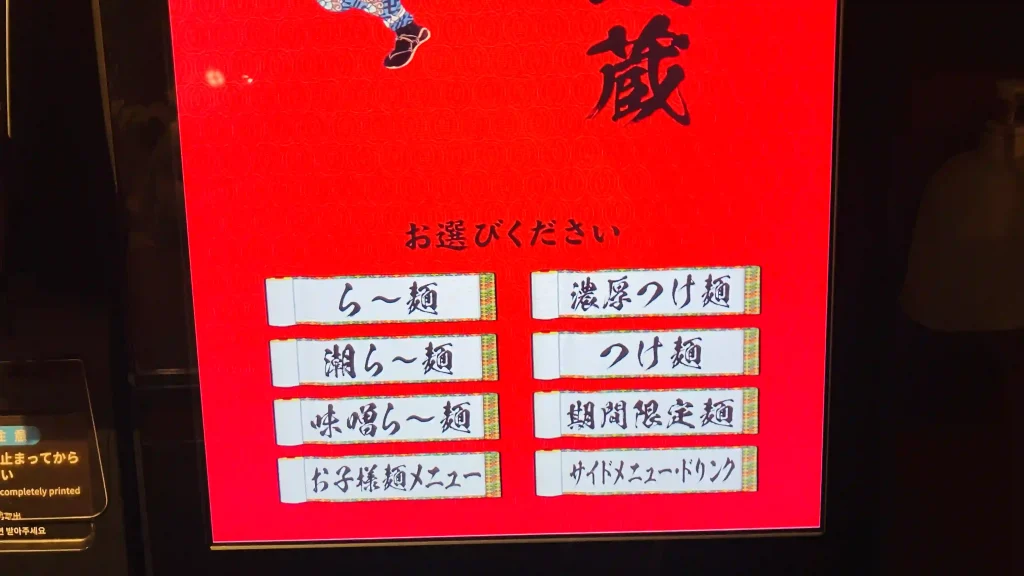 蔵
お選びください
ら〜麺
濃厚つけ麺
潮ら〜麺
つけ麺
味噌ら〜麺
期間限定麺
お子様麺メニュー
サイドメニュー・ドリンク
注意
止まってから
い
completely printed
取出
받아주세요